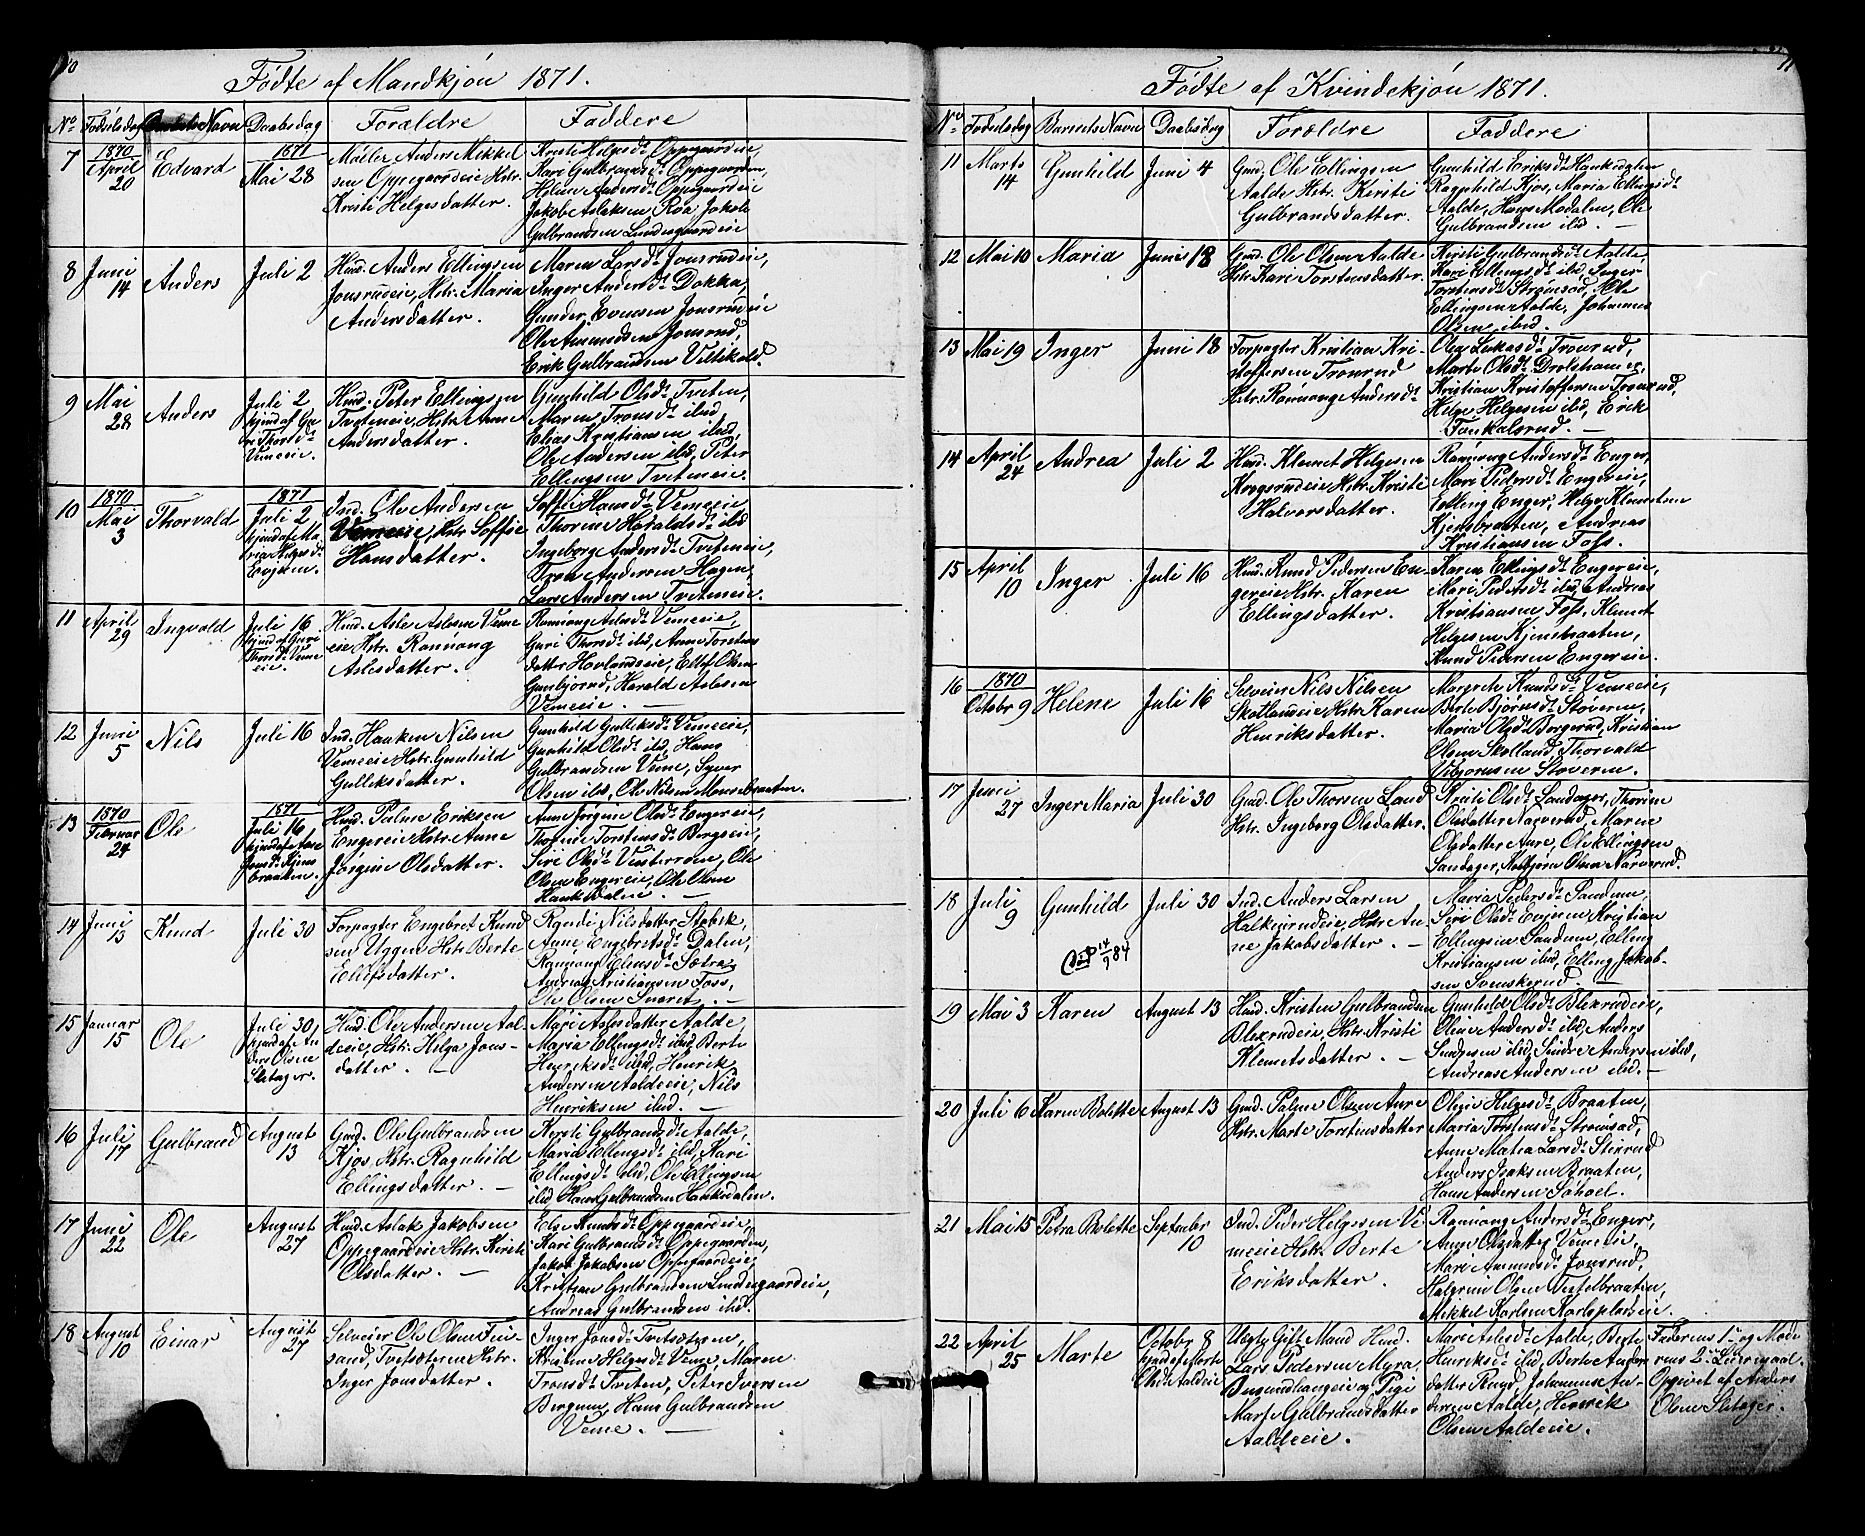 10
Fødte af Mandkjøn 1871.
No. Fødselsdag Barnets Navn Daabsdag Forældre Faddere
7
1870
April
20
Edvard
1871
Mai 28
Møller Anders Mikkel
sen Oppegaardeie Hstr.
Kristi Helgesdatter.
Kristi Helgesdr. Oppegaardeie,
Kari Gulbrandsdr. Oppegaarden,
Helene Andersdr. Oppegaardeie
Jakob Aslaksen Roa, Jakob
Gulbrandsen Lundegaardeie
8
Juni
14
Anders
Juli 2
Husd. Anders Ellingsen
Jonsrudeie, Hstr. Maria
Andersdatter.
Maren Larsdr. Jonsrudeie,
Inger Andersdr. Dokka,
Gunder Evensen Jonsrudeie
Ole Amundsen Jonsrud,
Erik Gulbrandsen Veltikold.
9
Mai
28
Anders
Juli 2
hjmd af Gu-
ri Thorsdr.
Vemeeie.
Husd. Peter Ellingsen
Tveteneie, Hstr. Anne
Andersdatter.
Gunhild Olsdr. Tveten,
Maren Tronsdr. ibid,
Elias Kristiansen ibid,
Ole Andersen ibid, Peter
Ellingsen Tveteneie.
10
1870
Mai
3
Thorvald
1871
Juli 2
hjmd af Ma-
ria Helgesdr.
Evjuen.
Ind. Ole Andersen
Vemeeie, Hstr. Soffie
Hansdatter.
Soffie Hansdr. Vemeeie
Thorine Haraldsdr. ibid
Ingeborg Andersdr. Tveteneie,
Tron Andersen Hagen,
Lars Andersen Tveteneie.
11
April
29
Ingvald
Juli 16
hjmd af Guri
Thorsdr. Veme
eie.
Husd. Asle Aslesen Veme
eie Hstr. Rønnoug
Aslesdatter.
Rønnoug Aslesdr. Vemeeie,
Guri Thorsdr. ibid, Anne Torstens
datter Hovlandseie, Ellef Olsen
Gunbjørrud, Harald Aslesen
Vemeeie. —
12
Juni
5
Nils
Juli 16
Ind. Hauken Nilsen
Vemeeie Hstr. Gunhild
Gulleksdatter.
Gunhild Gulleksdr. Vemeeie,
Gunhild Olsdr. ibid, Hans
Gulbrandsen Veme, Syver
Olsen ibid, Ole Nilsen Monsebraaten.
13
1870
Februar
24
Ole
1871
Juli 16
hjmd af Ane
Jonsdr. Kjens
braaten.
Husd. Palme Eriksen
Engereie Hstr. Anne
Jørgine Olsdatter.
Anne Jørgine Olsdr. Engereie,
Thorine Torstensdr. Bergseie,
Siri Olsdr. Vesterroen, Ole
Olsen Engereie, Ole Olsen
Hanksdalen. —
14
Juni
13
Knud
Juli 30
Forpagter Engebret Knud
sen Uggen Hstr. Berte
Ellefsdatter.
Ragndi Nilsdatter Stabæk
Anne Engebretsdr. Dalen,
Rønnoug Eliasdr. Sætra,
Andreas Kristiansen Foss,
Ole Olsen Snaret. —
15
Januar
15
Ole
Juli 30,
hjmd af An
ders Olsen
Sletager.
Husd. Ole Andersen Aal-
deeie, Hstr. Helga Jons-
datter.
Mari Aslesdatter Aalde,
Maria Ellingsdr. ibid, Berte
Henriksdr. ibid, Henrik
Andersen Aaldeeie, Nils
Henriksen ibid. —
16
Juli
17
Gulbrand
August
13
Gmd. Ole Gulbrandsen
Kjøs Hstr. Ragnhild
Ellingsdatter. —
Kersti Gulbrandsdr. Aalde,
Maria Ellingsdr. ibid, Kari
Ellingsdr. ibid, Ole Ellingsen
ibid Hans Gulbrandsen Hanksdalen.
17
Juni
22
Ole
August
27
Husd. Aslak Jakobsen
Oppegaardeie Hstr. Kirsti
Olsdatter. —
Else Knudsdr. Oppegaardeie,
Kari Gulbrandsdr. Oppegaarden,
Jakob Jakobsen Oppegaardeie,
Kristian Gulbrandsen Lundegaardeie,
Andreas Gulbrandsen ibid.
18
August
10
Einar
August
27
Selveier Ole Olsen
sand, Tvetsæteren Hstr.
Inger Jonsdatter.
Inger Jonsdr. Tvetsæteren,
Kristen Helgesdr. Veme, Maren
Tronsdr. Tveten, Peter Iversen
Bergum, Hans Gulbrandsen
Veme. —
11
Fødte af Kvindekjøn 1871.
No. Fødselsdag Barnets Navn Daabsdag Forældre Faddere
11
Marts
14
Gunhild
Juni 4
Gmd. Ole Ellingsen
Aalde Hstr. Kirsti
Gulbrandsdatter.
Gunhild Eriksdr. Hanksdalen
Ragnhild Kjøs, Maria Ellingsdr.
Aalde, Hans Modalen, Ole
Gulbrandsen ibid. —
12
Mai 10
Maria
Juni 18
Gmd. Ole Olsen Aalde
Hstr. Kari Torstensdatter.
Kirsti Gulbrandsdr. Aalde,
Kari Ellingsdr. ibid, Inger
Torstensdr. Strømsød, Ole
Ellingsen Aalde, Johannes
Olsen, ibid.
13
Mai 19
Inger
Juni 18
Forpagter Kristian Kri-
stoffersen Tronrud
Hstr. Rønnoug Andersdr.
Olea Lukasdr. Tronrud,
Marte Olsdr. Drolshammer,
Kristian Kristoffersen Tronrud,
Helge Helgesen ibid, Erik
Fonkalsrud. —
14
April
24
Andrea
Juli 2
Husd. Klemet Helgesen
Krogsrudeie Hstr. Kristi
Halvorsdatter.
Rønnoug Andersdr. Enger,
Mari Pedersdr. Engereie,
Elling Enger, Helge Klemetsen
Kjensbraaten, Andreas
Kristiansen Foss.
15
April
10
Inger
Juli 16
Husd. Knud Pedersen En-
gereie Hstr. Karen
Ellingsdatter.
Karen Ellingsdr. Engereie,
Mari Pedersdr. ibid, Andreas
Kristiansen Foss, Klemet
Helgesen Kjensbraaten,
Knud Pedersen Engereie.
16
1870
Octobr 9
Helene
Juli 16
Selveier Nils Nilsen
Skotlandeie Hstr. Karen
Henriksdatter.
Margrete Knudsdr. Vemeeie,
Berte Bjørnsdr. Stoveren,
Maria Olsdr. Borgerud, Kristian
Olsen Skotland, Thorvald
Vebjørnsen Stoveren.
17
Juni
27
Inger Maria
Juli 30
Gmd. Ole Thorsen Land
Hstr. Ingeborg Olsdatter.
Kristi Olsdr. Sandager, Thorine
Olsdatter Narverud, Maren
Olsdatter Aure, Ole Ellingsen
Sandager, Kolbjørn Olsen Narverud.
18
Juli
9
Gunhild
Juli 30
Ind. Anders Larsen
Halkinrudeie, Hstr. An-
ne Jakobsdatter. —
Maria Pedersdr. Sandum,
Siri Olsdr. Evjuen Kristian
Ellingsen Sandum, Elling
Kristiansen ibid, Elling Jakob-
sen Svenskerud. —
19
Mai 3
Karen
August 13
Husd. Kristen Gulbrandsen
Blexrudeie, Hstr. Kristi
Klemetsdatter. —
Gunhild Olsdr. Blexrudeie,
Oline Andersdr. ibid, Anders
Sindresen ibid, Sindre Andersen ibid,
Andreas Andersen ibid. —
20
Juli 6
Karen Bolette
August 13
Gmd. Palme Olsen Aure
Hstr. Marte Torstensdatter
Oline Helgesdr. Braaten,
Maria Torstensdr. Strømsød,
Anne Matea Larsdr. Stixrud
Anders Isaksen Braaten,
Hans Andersen Søhoel.
21
Mai 15
Petra Bolette
September
10
Ind. Peder Helgesen Ve
meeie Hstr. Berte
Eriksdatter.
Rønnoug Andersdr. Enger,
Anne Olsdatter Vemeeie,
Mari Amundsdr. Jonsrud,
Halgrim Olsen Testelbraaten,
Mikkel Karlsen Karlspladseie.
22
April
25
Marte
Octobr 8
hjmd af Marte
Olsdr. Aaldeeie
Uegte Gift Mand Husd.
Lars Pedersen Myra,
og Pige
Marte Gulbrandsdatter
Aaldeeie.
Mari Aslesdr. Aalde, Berte
Henriksdr. ibid, Berte Anders
datter Rud, Johannes An-
dersen Aalde, Henrik
Olsen Aaldeeie.
Faderens 1ste og Mode
rens 2det Leiermaal.
Opgivet af Anders
Olsen Sletager.